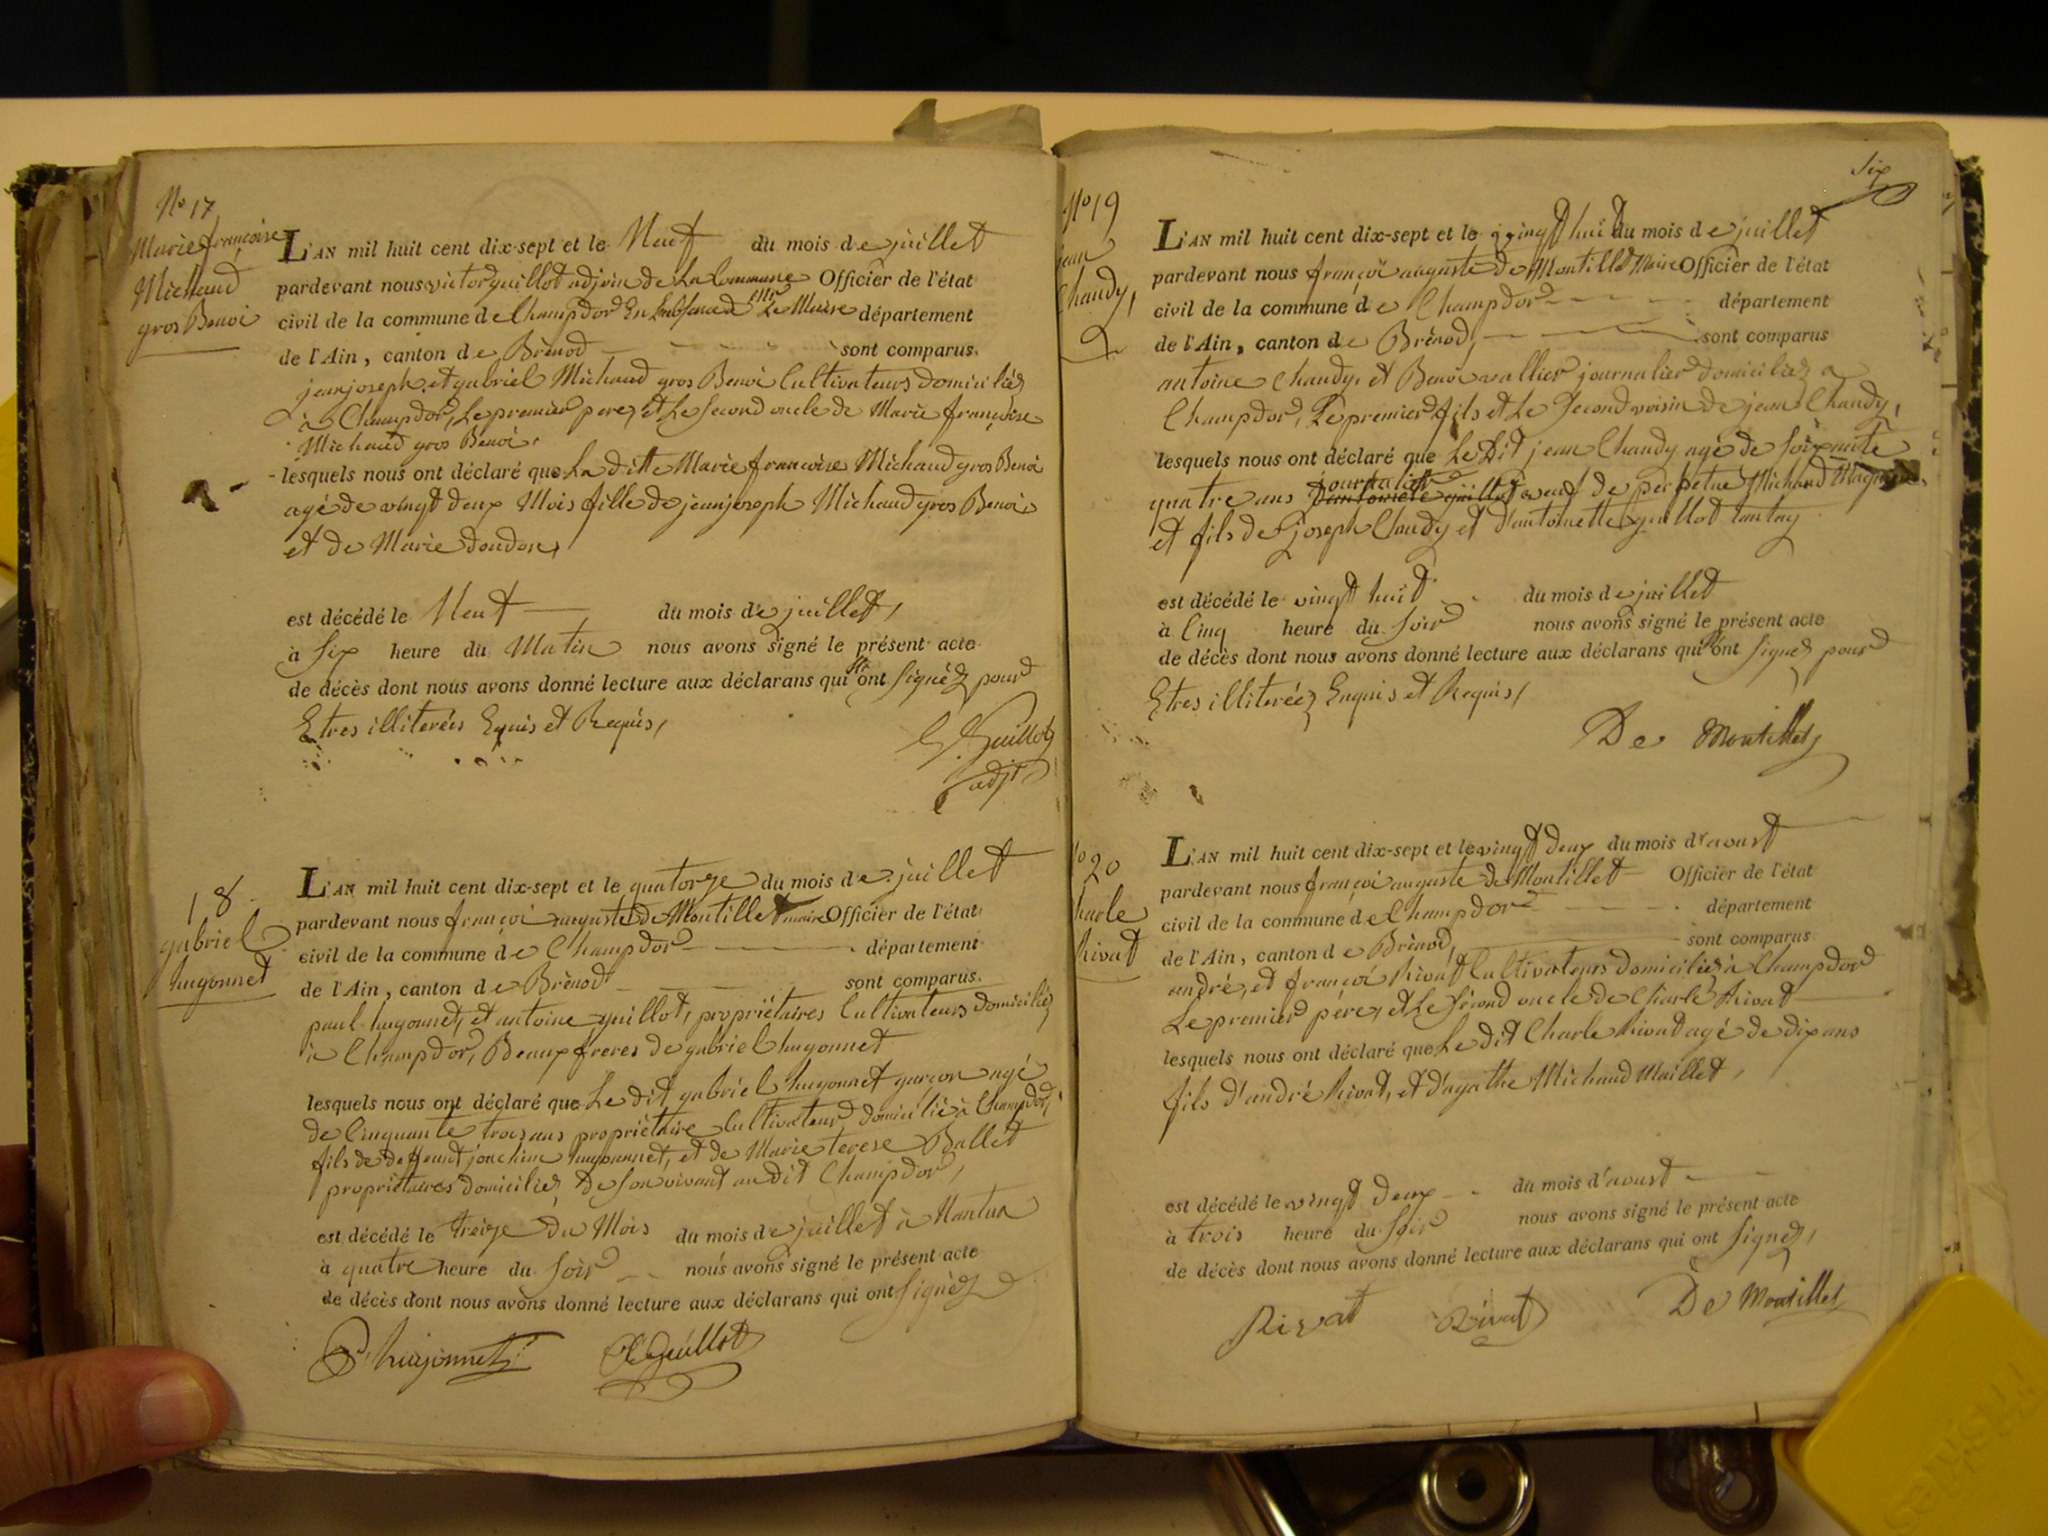 No 17
Marie françoise
Michaud
gros Benoi
L'AN mil huit cent dix-sept et le Neuf du mois de juillet
pardevant nous victor guillot adjoin de La Commune Officier de l'état
civil de la commune de Champdor En Labsence de Mr Le Maire département
de l'Ain, canton de Brénod sont comparus
jean joseph et gabriel Michaud gros Benoi Cultivateurs domiciliéz
à Champdor, Le premier pere, et Le second oncle de Marie françoise
Michaud gros Benoi,
lesquels nous ont déclaré que La ditte Marie francoise Michaud gros Benoi
agé de vingt deux Mois fille de jean joseph Michaud gros Benoi
et de Marie doudon,
est décédé le Neuf du mois de juillet,
à Six heure du Matin nous avons signé le présent acte
de décès dont nous avons donné lecture aux déclarans qui n'ont signéz pour
Etres illiterées Equis et Requis,
Guillot
adjt
18
gabriel
hugonnet
L'AN mil huit cent dix-sept et le quatorze du mois de juillet
pardevant nous françoi auguste de Montillet maire Officier de l'état
civil de la commune de Champdor département
de l'Ain, canton de Brénod sont comparus
paul hugonnet, et antoine guillot, propriétaires Cultivateurs domiciliéz
à Champdor, Beaux freres de gabriel hugonnet
lesquels nous ont déclaré que Le dit gabriel hugonnet garçon agé
de Cinquante trois ans propriétaire Cultivateur domicilié à Champdor,
fils de deffeunt joachim hugonnet, et de Marie terese Ballet
propriétaires domiciliéz de son vivant au dit Champdor,
est décédé le treize du Mois du mois de juillet à Nantua
à quatre heure du soir nous avons signé le présent acte
de décès dont nous avons donné lecture aux déclarans qui ont signéz
P. hugonnet Guillot
Six
No 19
jean
Chandy,
L'AN mil huit cent dix-sept et le vingt huit du mois de juillet
pardevant nous françoi auguste de Montillet Maire Officier de l'état
civil de la commune de Champdor département
de l'Ain, canton de Brénod, sont comparus
antoine Chandy, et Benoi vallier journalier domiciliéz a
Champdor, Le premier fils et Le Second voisin de jean Chandy,
lesquels nous ont déclaré que Le Dit jean Chandy agé de soixante
journalier
quatre ans veuf de perpetue Michaud
et fils de joseph Chandy et d'antoinette guillot tantoy
est décédé le vingt huit du mois de juillet
à Cinq heure du Soir nous avons signé le présent acte
de décès dont nous avons donné lecture aux déclarans qui n'ont signéz pour
Etres illiteréez Enquis et Requis,
De Montillet
No 20
Charle
Rivat
L'AN mil huit cent dix-sept et le vingt deux du mois d'aoust
pardevant nous françoi auguste de Montillet Officier de l'état
civil de la commune de Champdor département
de l'Ain, canton de Brénod, sont comparus
andré, et françoi Rivat Cultivateurs domiciliéz à Champdor
Le premier pére, et Le second oncle de Charle Rivat
lesquels nous ont déclaré que Le dit Charle Rivat agé de dix ans
fils d'andré Rivat, et d'agathe Michaud Maillet,
est décédé le vingt deux du mois d'aoust
à trois heure du Soir nous avons signé le présent acte
de décès dont nous avons donné lecture aux déclarans qui ont signéz,
Rivat Rivat De Montillet